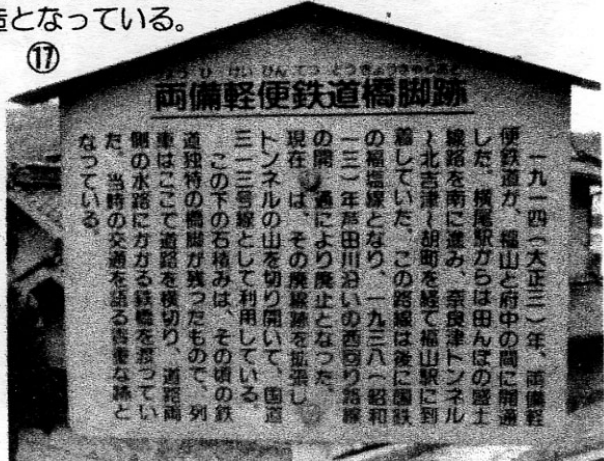 造となっている。
⑰
両備軽便鉄道橋脚跡
一九一四（大正三）年、両備軽
便鉄道が、福山と府中の間に開通
した。横尾駅からは田んぼの盛土
線路を南に進み、奈良津トンネル
～北吉津～胡町を経て福山駅に到
着していた。この路線は後に国鉄
の福塩線となり、一九三八（昭和
一三）年芦田川沿いの西回り路線
の開通により廃止となった。
現在は、その廃線跡を拡張し
トンネルの山を切り開いて、国道
三一三号線として利用している。
この下の石積みは、その頃の鉄
道独特の橋脚が残ったもので、列
車はここで道路を横切り、道路両
側の水路にかかる鉄橋を渡ってい
た。当時の交通を語る貴重な跡と
なっている。